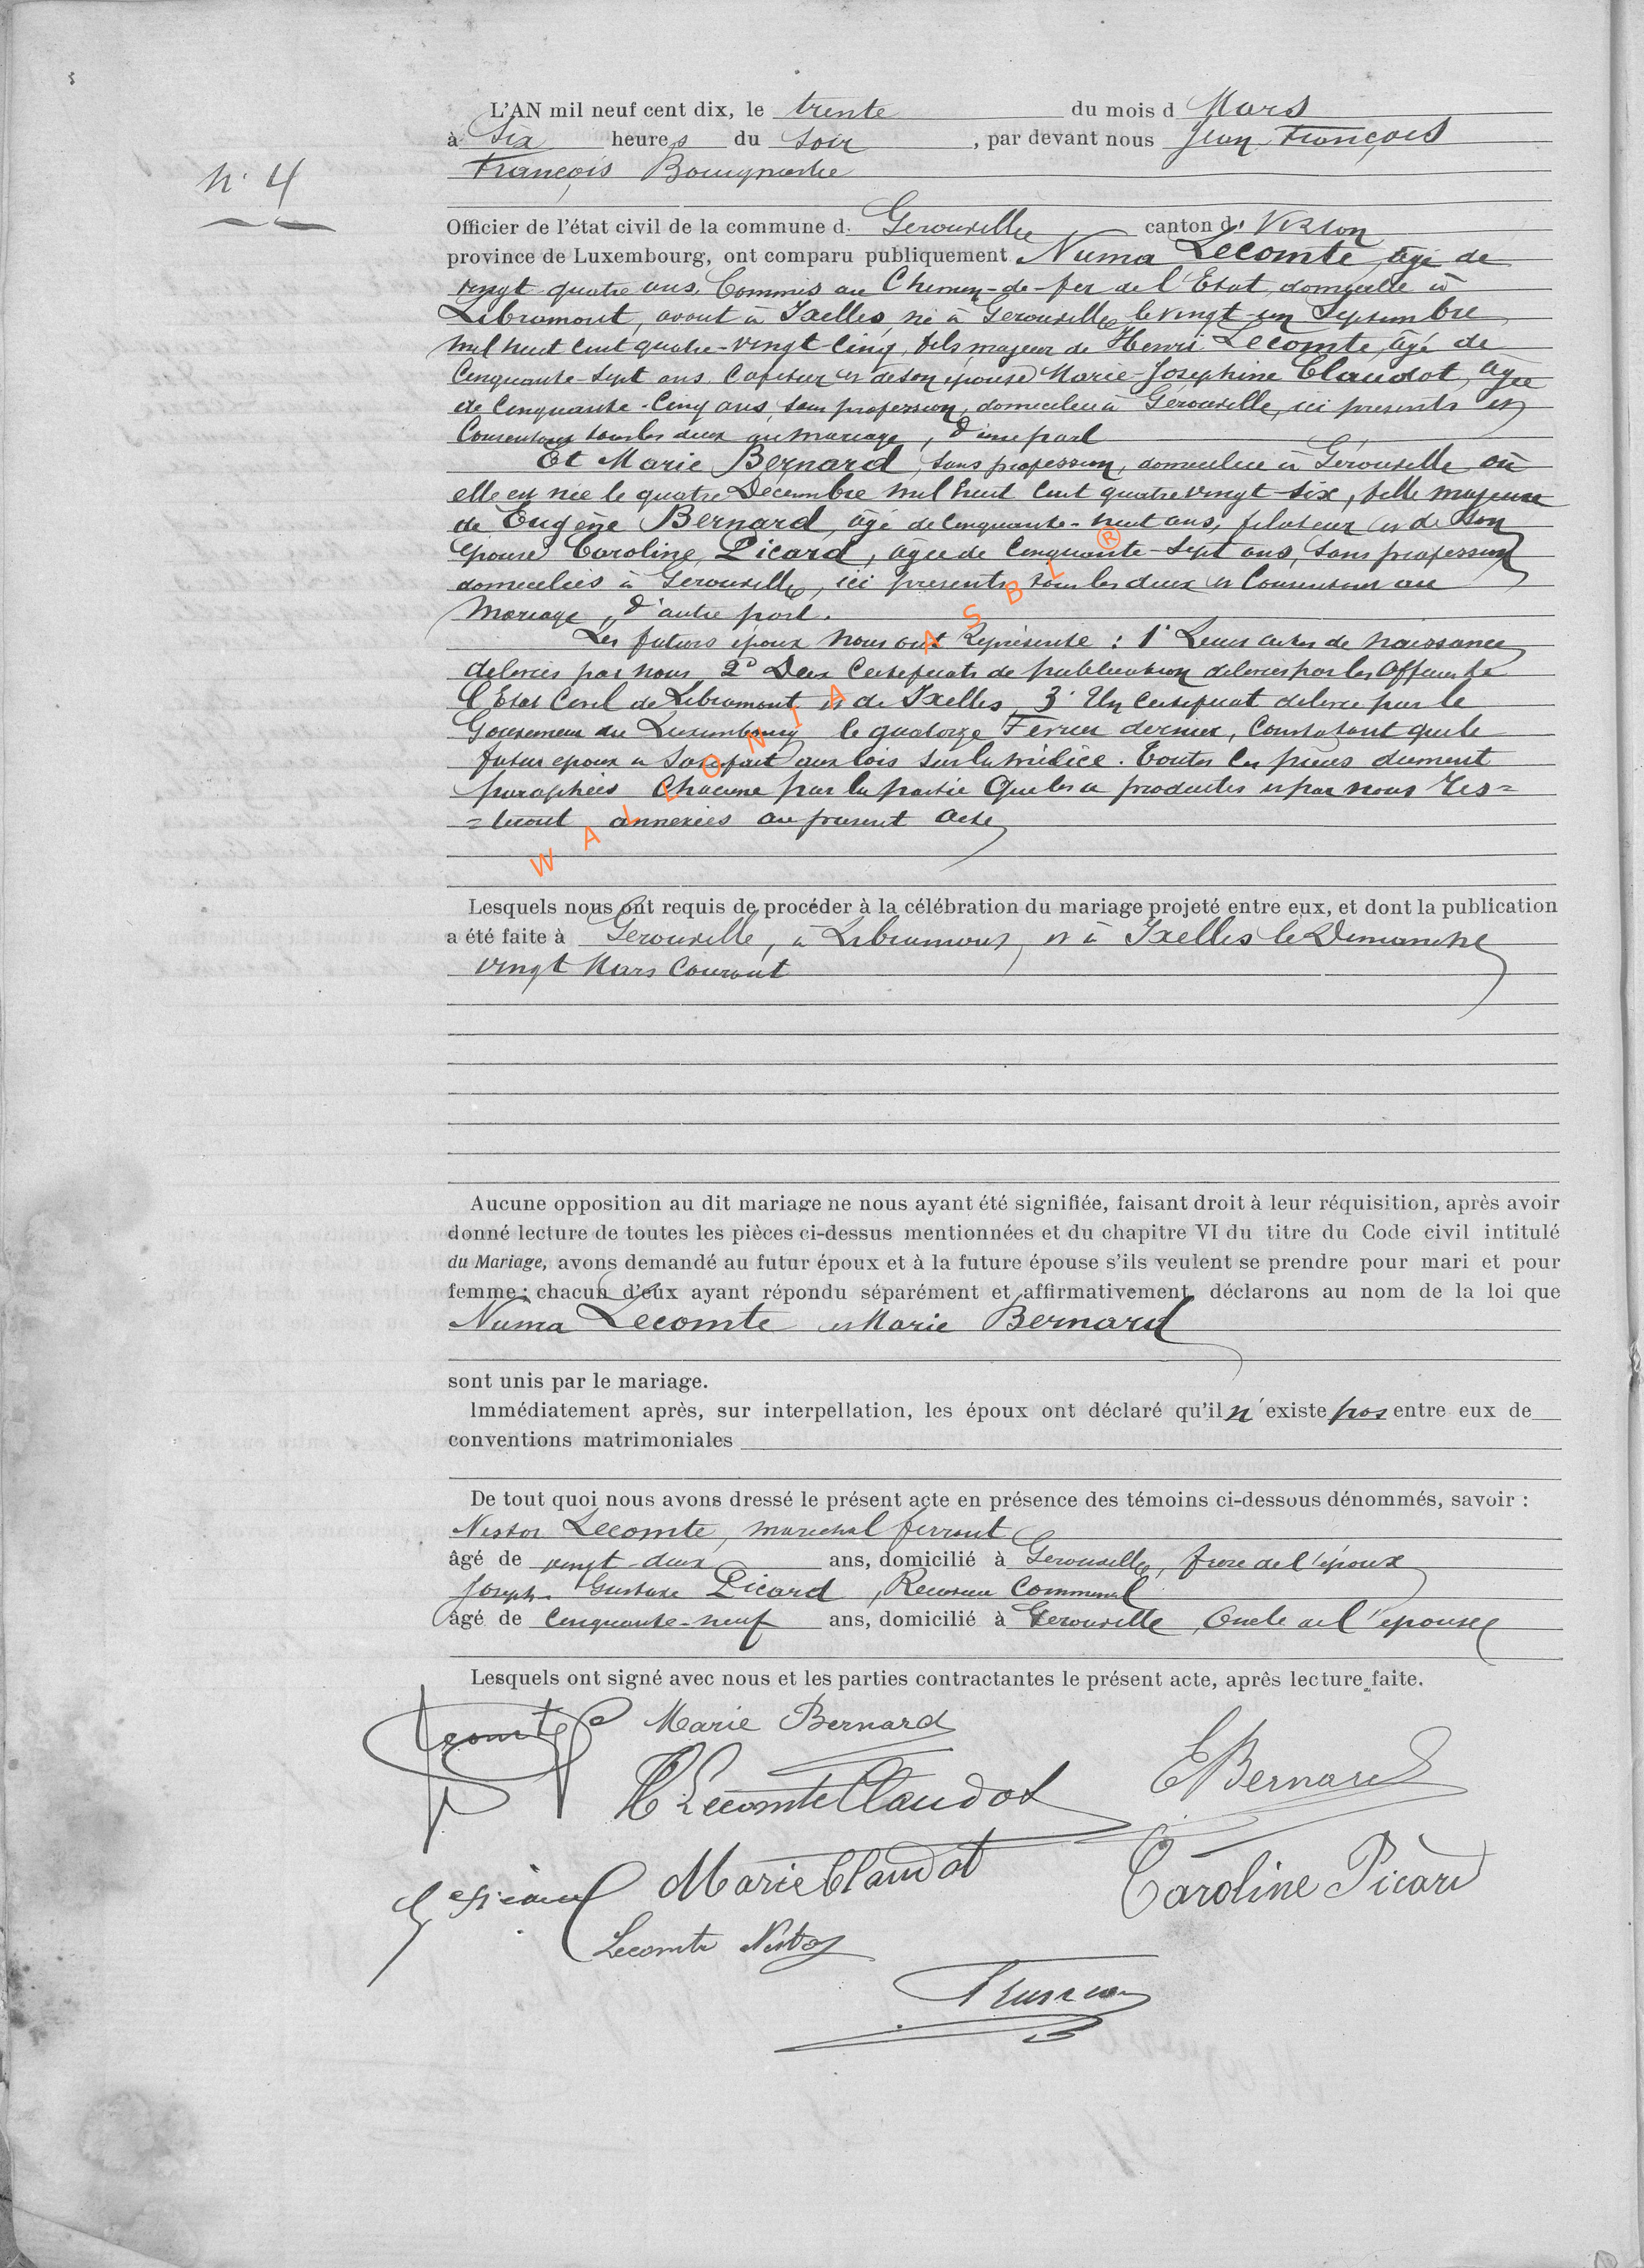 N° 4
L'AN mil neuf cent dix, le trente du mois d Mars
à Six heures du Soir, par devant nous Jean François
François Bourgmestre
Officier de l'état civil de la commune d. Gerouville canton d. Virton
province de Luxembourg, ont comparu publiquement Numa Lecomte, âgé de
vingt-quatre ans, Commis au Chemin-de-fer de l'Etat, domicilié à
Libramont, avant à Ixelles, né à Gerouville, le vingt-un Septembre
mil huit cent quatre-vingt-cinq, fils majeur de Henri Lecomte, âgé de
Cinquante-sept ans, et de son épouse Marie-Joséphine Claudot, âgée
de Cinquante-Cinq ans, sans profession, domiciliés à Gérouville, ici présents et
Consentant tous les deux au mariage, d'une part
Et Marie Bernard, sans profession, domiciliée à Gérouville où
elle est née le quatre Décembre mil huit cent quatre vingt-six, fille majeure
de Eugène Bernard, âgé de Cinquante-huit ans, et de son
épouse Caroline Picard, âgée de Cinquante-sept ans, sans profession
domiciliés à Gerouville, ici présents tous les deux et Consentant au
Mariage, d'autre part.
Les futurs époux nous ont représenté : 1° Leurs actes de naissance
délivrés par nous 2° Deux Certificats de publication délivrés par les Officiers de
l'Etat Civil de Libramont et de Ixelles, 3° Un certificat délivré par le
Gouverneur du Luxembourg le quatorze Février dernier, Constatant que le
futur époux a satisfait aux lois sur la milice. Toutes les pièces dument
paraphées Chacune par la partie Qui les a produites et par nous res=
=teront annexées au présent acte
WALLONIA ASBL ®
Lesquels nous ont requis de procéder à la célébration du mariage projeté entre eux, et dont la publication
a été faite à Gerouville, à Libramont, et à Ixelles le Dimanche
vingt Mars Courant
Aucune opposition au dit mariage ne nous ayant été signifiée, faisant droit à leur réquisition, après avoir
donné lecture de toutes les pièces ci-dessus mentionnées et du chapitre VI du titre du Code civil intitulé
du Mariage, avons demandé au futur époux et à la future épouse s'ils veulent se prendre pour mari et pour
femme ; chacun d'eux ayant répondu séparément et affirmativement, déclarons au nom de la loi que
Numa Lecomte et Marie Bernard
sont unis par le mariage.
Immédiatement après, sur interpellation, les époux ont déclaré qu'il n'existe pas entre eux de
conventions matrimoniales
De tout quoi nous avons dressé le présent acte en présence des témoins ci-dessous dénommés, savoir :
Nestor Lecomte, maréchal ferrant
âgé de vingt-deux ans, domicilié à Gerouville, frère de l'époux
Joseph Gustave Picard, Receveur Communal
âgé de Cinquante-neuf ans, domicilié à Gerouville, Oncle de l'épouse
Lesquels ont signé avec nous et les parties contractantes le présent acte, après lecture faite.
Lecomte Marie Bernard
H Lecomte Claudot E Bernard
Marie Claudot Caroline Picard
Lecomte Nestor